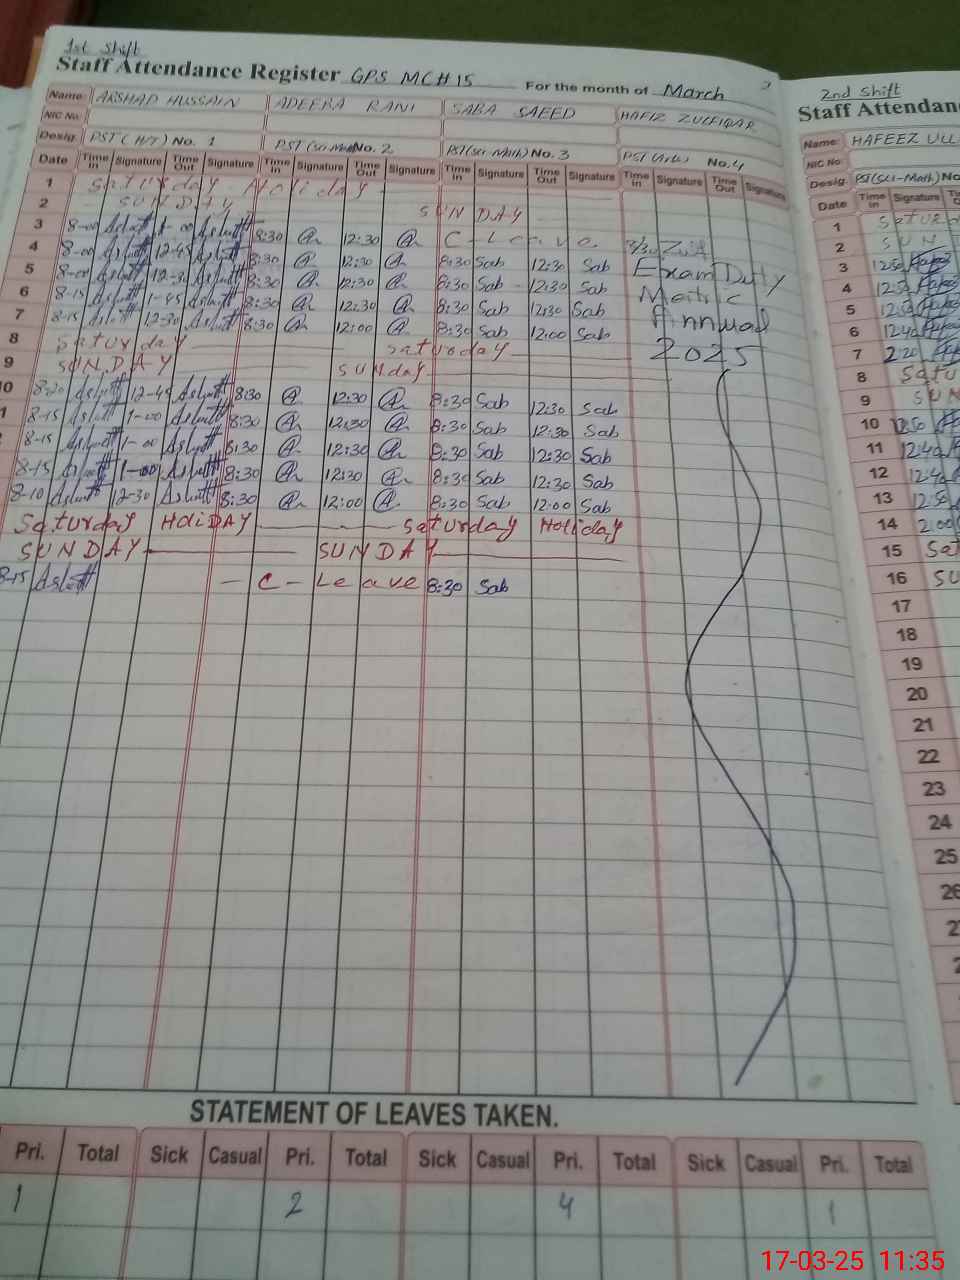 1st Shift
Staff Attendance Register GPS MC# 15 For the month of March
Name: ARSHAD HUSSAIN ADEEBA RANI SABA SAEED HAFIZ ZULFIQAR
NIC No:
Desig: PST (H/T) No. 1 PST No. 2 PST (Sci-Math) No. 3 PST (Arts) No. 4
Date Time In Signature Time Out Signature Time In Signature Time Out Signature Time In Signature Time Out Signature Time In Signature Time Out Signature
1 Saturday Holiday
2 SUNDAY SUNDAY
3 8-00 8:30 12:30 C-Leave
4 8-00 12-45 8:30 12:30 8:30 Sab 12:30 Sab Exam Duty
5 8-00 12-30 8:30 12:30 8:30 Sab 12:30 Sab Matric
6 8-15 1-45 8:30 12:30 8:30 Sab 12:30 Sab Annual
7 8-15 12-30 8:30 12:00 8:30 Sab 12:00 Sab 2025
8 Saturday Saturday
9 SUNDAY SUNday
10 8-20 12-45 8:30 12:30 8:30 Sab 12:30 Sab
8-15 1-00 8:30 12:30 8:30 Sab 12:30 Sab
8-15 1-00 8:30 12:30 8:30 Sab 12:30 Sab
8-15 1-00 8:30 12:30 8:30 Sab 12:30 Sab
8-10 12-30 8:30 12:00 8:30 Sab 12:00 Sab
Saturday HoliDAY Saturday Holiday
SUNDAY SUNDAY
8-15 C-Leave 8:30 Sab
STATEMENT OF LEAVES TAKEN.
Pri. Total Sick Casual Pri. Total Sick Casual Pri. Total Sick Casual Pri. Total
1 2 4 1
2nd Shift
Staff Attendan
Name: HAFEEZ ULL
NIC No:
Desig: PST(Sci-Math) No
Date Time In Signature
1 Satur
2 SUN
3 12:50
4 12:50
5 12:50
6 12:40
7 2:20
8 Satu
9 SUN
10 12:50
11 12:40
12 12:40
13 12:50
14 2:00
15 Sat
16 SU
17
18
19
20
21
22
23
24
25
26
17-03-25 11:35